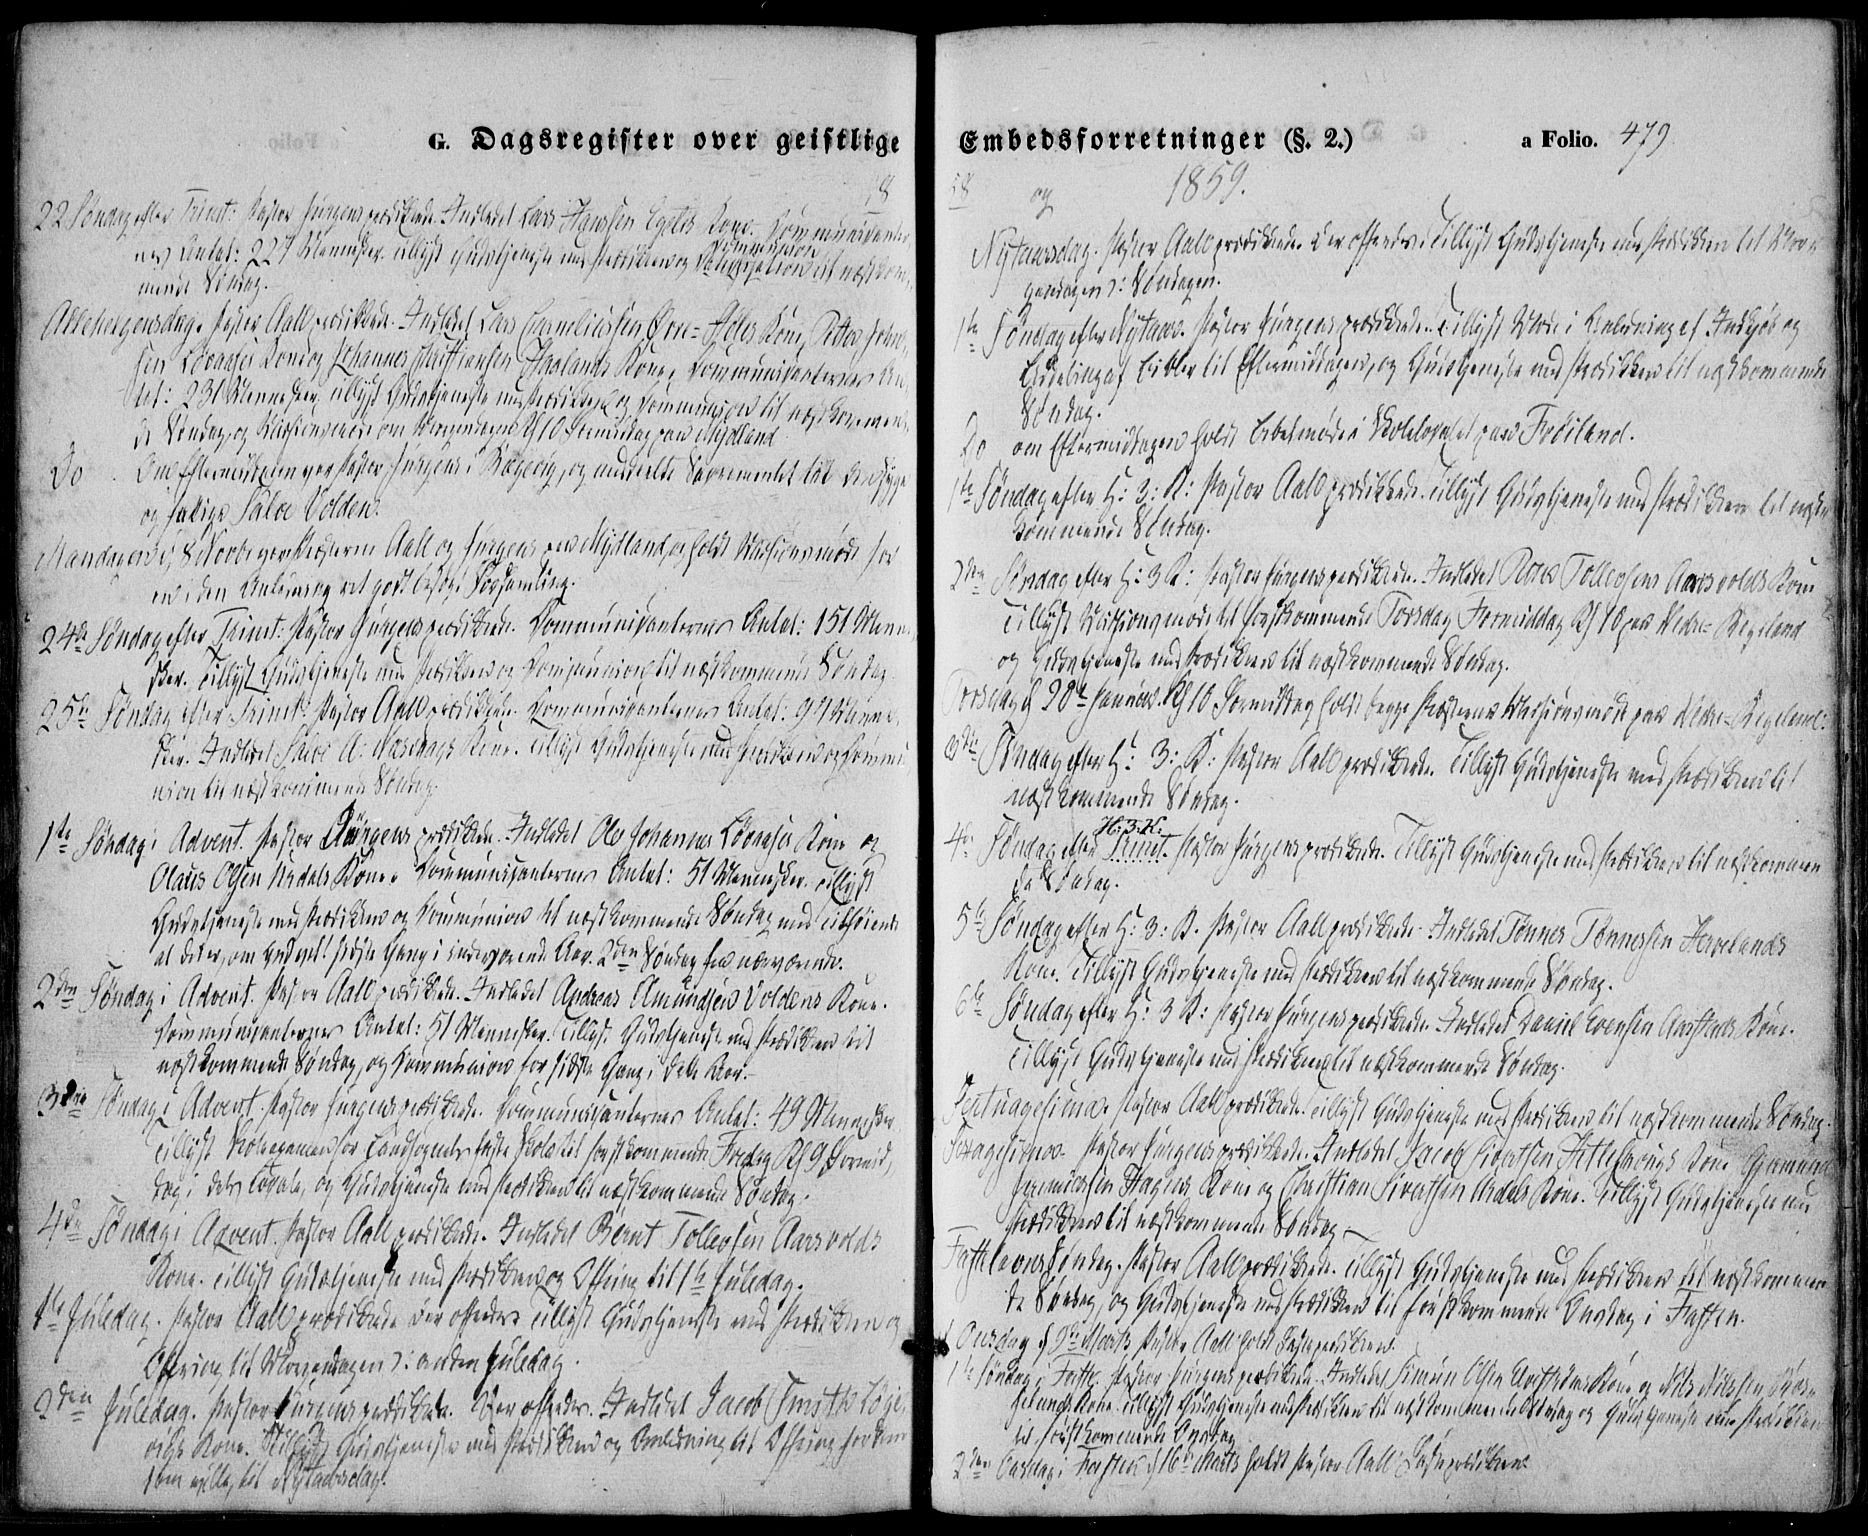 G. Dagsregister over geistlige
18
22 Søndag efter Trinit: Pastor Jürgens prædikede. Indledet Lars Hanssen Kone. Communicanter
nes Antal: 227 Mennesker. Tillyst Gudstjeneste med Prædiken og Communion til næstkom-
mende Søndag.
Allehelgensdag. Pastor Aall prædikede. Indledet Lars Corneliussen Kone, Peder
sen Kone og Johannes Christiansen Haalands Kone. Communicanternes An
tal: 231 Mennesker. Tillyst Gudstjeneste med Prædiken og Communion til næstkommen
de Søndag, og Missionsmøde om Morgendagen Kl 10 Formiddag paa Mydland.
Do Om Eftermiddagen var Pastor Jürgens i Rægevig, og meddelte Sacramentet til den syge
og Salve Volden.
Mandagen d. 8 Novbr vare Præsterne Aall og Jürgens paa Mydland, og holdt Missionsmøde for
en i den Anledning ret godt besøgt Forsamling.
24de Søndag efter Trinit: Pastor Jürgens prædikede. Communicanternes Antal: 151 Menne
sker. Tillyst Gudstjeneste med Prædiken og Communion til næstkommende Søndag.
25de Søndag efter Trinit: Pastor Aall prædikede. Communicanternes Antal: 97 Menne
sker. Indledet Salve A. Kone. Tillyst Gudstjeneste med Prædiken og Commu
nion til næstkommende Søndag.
1ste Søndag i Advent. Pastor Jürgens prædikede. Indledet Ole Johannes Kone og
Olaus Olsen Kone. Communicanternes Antal: 51 Mennesker. Tillyst
Gudstjeneste med Prædiken og Communion til næstkommende Søndag med Tilføiende
at det er, om Gud vil! sidste Gang i indeværende Aar. 2den Søndag
2den Søndag i Advent. Pastor Aall prædikede. Indledet Andreas Amundsen Voldens Kone.
Communicanternes Antal: 51 Mennesker. Tillyst Gudstjeneste med Prædiken til
næstkommende Søndag, og Communion for sidste Gang i dette Aar.
3die Søndag i Advent. Pastor Jürgens prædikede. Communicanternes Antal: 49 Mennesker
Tillyst Skoleexamen for Landsognets faste Skole til førstkommende Fredag Kl 9 Formid,
dag i dets Locale, og Gudstjeneste med Prædiken til næstkommende Søndag.
4de Søndag i Advent. Pastor Aall prædikede. Indledet Bernt Tollevsen Aarsvolds
Kone. Tillyst Gudstjeneste med Prædiken og Offring til 1ste Juledag.
1ste Juledag. Pastor Aall prædikede. Der ofredes. Tillyst Gudstjeneste med Prædiken og
Ofring til Morgendagen ɔ: anden Juledag.
2den Juledag. Pastor Jürgens prædikede. Der ofredes. Indledet Jacob Smith
Kone. Tillyst Gudstjeneste med Prædiken og Anledning til Offring for dem
som ville, til Nytaarsdag.
Embedsforretninger (§. 2.) a Folio. 479
58 og 1859.
Nytaarsdag. Pastor Aall prædikede. Der ofredes. Tillyst Gudstjeneste med Prædiken til Mor
gendagen ɔ: Søndagen.
1ste Søndag efter Nytaar. Pastor Jürgens prædikede. Tillyst Møde i Anledning af Indkjøb og
Uddeling af Bibler til Eftermiddagen, og Gudstjeneste med Prædiken til næstkommende
Søndag.
Do om Eftermiddagen holdt Bibelmøde i Skolelocalet paa Frøiland.
1ste Søndag efter H: 3: K: Pastor Aall prædikede. Tillyst Gudstjeneste med Prædiken til næst
kommende Søndag.
2den Søndag efter H: 3 K: Pastor Jürgens prædikede. Indledet Tollevsen Aarsvolds Kone
Tillyst Missionsmøde til førstkommende Torsdag Formiddag Kl 10 paa Nedre-Regeland
og Gudstjeneste med Prædiken til næstkommende Søndag.
Torsdag d 20de Januar Kl 10 Formiddag holdt begge Præsterne Missionsmøde paa Nedre-Regeland.
3die Søndag efter H: 3: K: Pastor Aall prædikede. Tillyst Gudstjeneste med Prædiken til
næstkommende Søndag.
4de Søndag efter H: 3: K: Trinit. Pastor Jürgens prædikede. Tillyst Gudstjeneste med Prædiken til næstkommen
de Søndag.
5te Søndag efter H: 3: K. Pastor Aall prædikede. Indledet Tønnes Tønnessen Hervelands
Kone. Tillyst Gudstjeneste med Prædiken til næstkommende Søndag.
6te Søndag efter H: 3 K: Pastor Jürgens prædikede. Indledet Daniel Evensen Aarstads Kone.
Tillyst Gudstjeneste med Prædiken til næstkommende Søndag.
Septuagesima. Pastor Aall prædikede. Tillyst Gudstjeneste med Prædiken til næstkommende Søndag.
Sexagesima. Pastor Jürgens prædikede. Indledet Jacob Sivertsen Kone, Gjermund
Kone og Christian Sivertsen Kone. Tillyst Gudstjeneste med
Prædiken til næstkommende Søndag.
Fastelavns Søndag. Pastor Aall prædikede. Tillyst Gudstjeneste med Prædiken til næstkommen
de Søndag, og Gudstjeneste med Prædiken til førstkommende Onsdag i Fasten.
1 Onsdag d 9de Marts Pastor Aall holdt Fasteprædiken.
1ste Søndag i Faste. Pastor Jürgens prædikede. Indledet Simon Olsen Kone og Nils Nilsen
Kone. Tillyst Gudstjeneste med Prædiken til næstkommende Søndag og Gudstjeneste med Prædiken
til førstkommende Onsdag.
2den Onsdag i Fasten d 16de Marts holdt Pastor Aall Fasteprædiken.